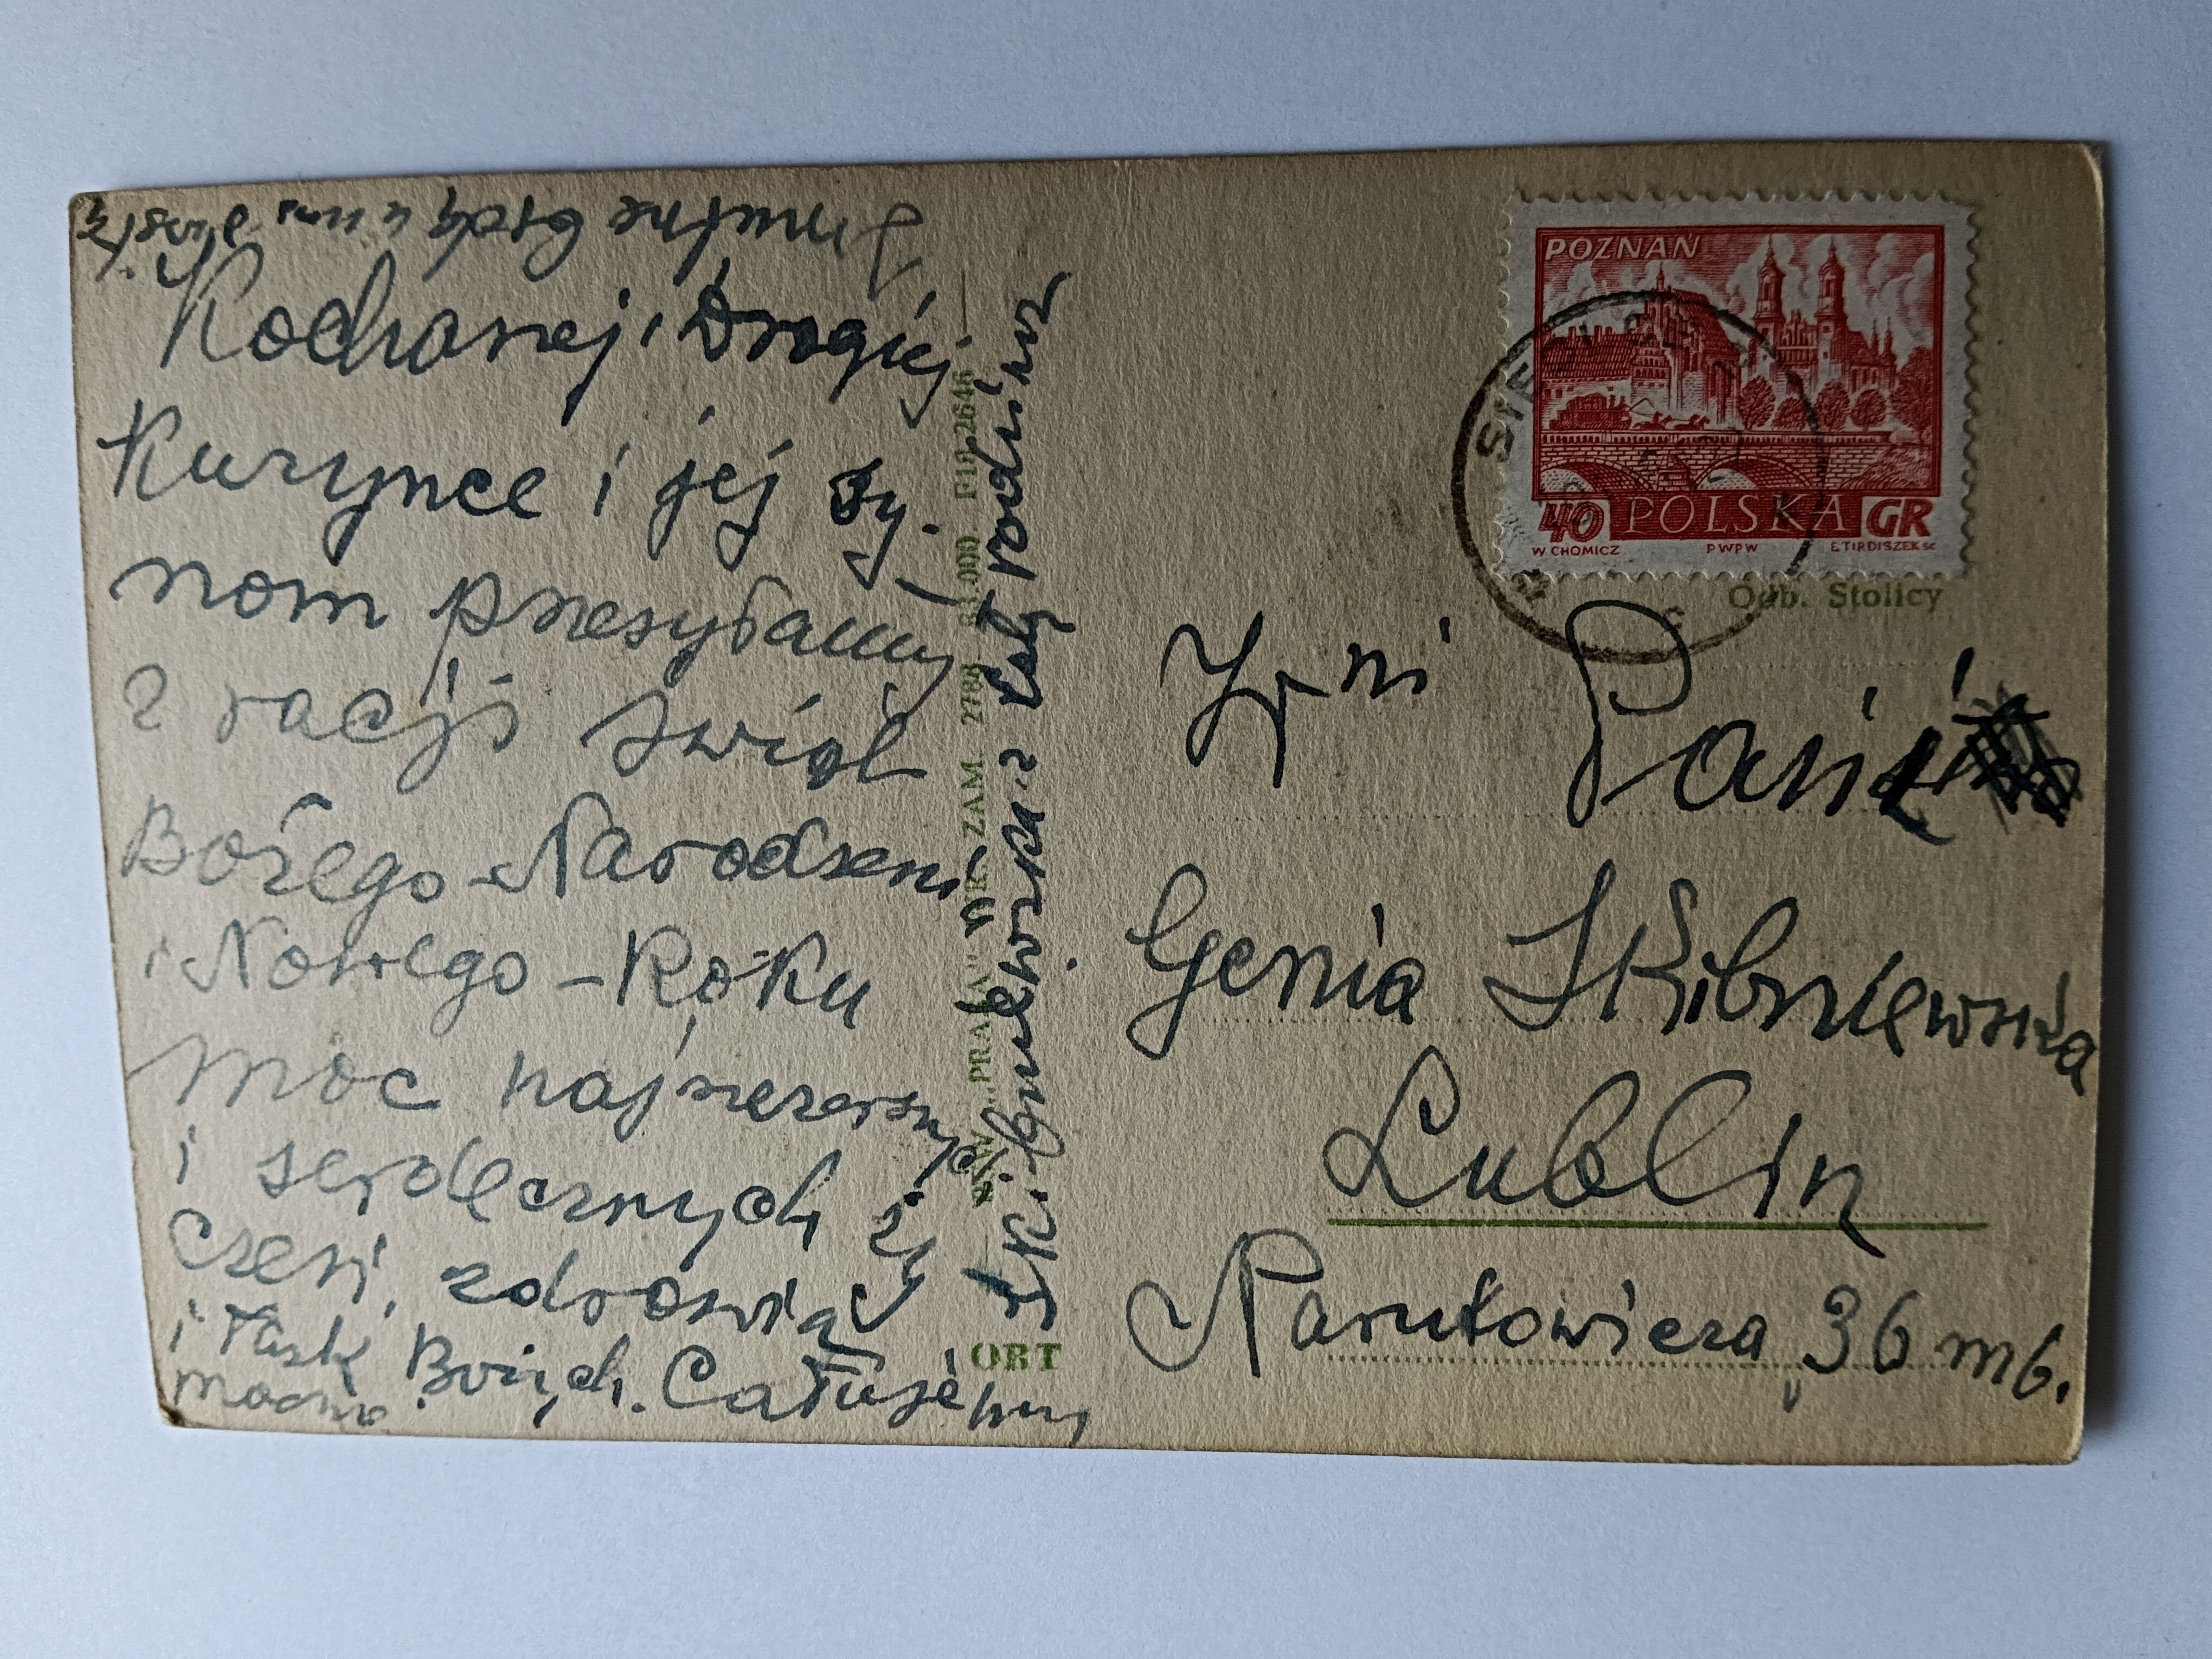 Smutne będą u nas święta
Kochanej, Drogiej
Kuzynce i jej sy-
nom przesyłamy
z racji świąt
Bożego-Narodzeni
i Nowego-Roku
moc najszczerszych
i serdecznych ży
czeń, zdrowia
i łask Bożych. Całujemy
mocno
Skibniewska z całą rodziną
RSW „PRASA" NR ZAM 2788 83.000. P10-2646
ORT
POZNAŃ
40 POLSKA GR
W CHOMICZ PWPW E.TIRDISZEK sc
Odb. Stolicy
Pani
Genia Skibniewska
Lublin
Narutowicza 36 m 6.